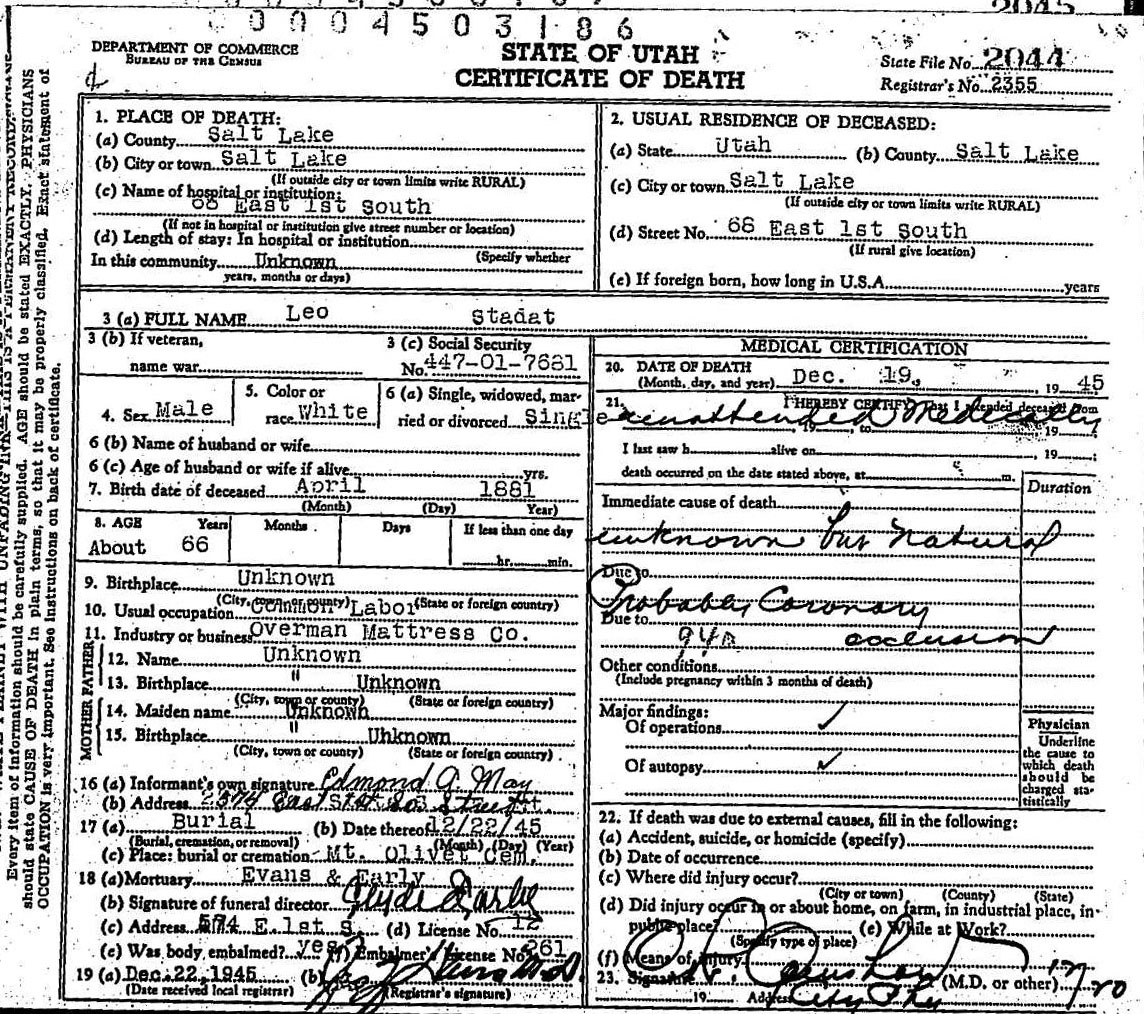 0004503186
2045
DEPARTMENT OF COMMERCE
BUREAU OF THE CENSUS
STATE OF UTAH
CERTIFICATE OF DEATH
State File No. 2044
Registrar's No. 2355
Every item of information should be carefully supplied. AGE should be stated EXACTLY. PHYSICIANS
should state CAUSE OF DEATH in plain terms, so that it may be properly classified. Exact statement of
OCCUPATION is very important. See instructions on back of certificate.
1. PLACE OF DEATH:
(a) County Salt Lake
(b) City or town Salt Lake
(If outside city or town limits write RURAL)
(c) Name of hospital or institution:
68 East 1st South
(If not in hospital or institution give street number or location)
(d) Length of stay: In hospital or institution
In this community Unknown (Specify whether
years, months or days)
2. USUAL RESIDENCE OF DECEASED:
(a) State Utah (b) County Salt Lake
(c) City or town Salt Lake
(If outside city or town limits write RURAL)
(d) Street No. 68 East 1st South
(If rural give location)
(e) If foreign born, how long in U.S.A. years
3 (a) FULL NAME Leo Stadat
3 (b) If veteran,
name war
3 (c) Social Security
No. 447-01-7681
4. Sex Male
5. Color or
race White
6 (a) Single, widowed, mar-
ried or divorced Single
6 (b) Name of husband or wife
6 (c) Age of husband or wife if alive yrs.
7. Birth date of deceased April 1881
(Month) (Day) Year)
8. AGE Years Months Days If less than one day
About 66 hr. min.
9. Birthplace Unknown
(City, town or county) (State or foreign country)
10. Usual occupation Common Labor
11. Industry or business Overman Mattress Co.
FATHER
12. Name Unknown
13. Birthplace " Unknown
(City, town or county) (State or foreign country)
MOTHER
14. Maiden name Unknown
15. Birthplace " Uhknown
(City, town or county) (State or foreign country)
16 (a) Informant's own signature Edmond G. May
(b) Address East Street
17 (a) Burial (b) Date thereof 12/22/45
(Burial, cremation, or removal) (Month) (Day) (Year)
(c) Place: burial or cremation Mt. Olivet Cem.
18 (a) Mortuary Evans & Early
(b) Signature of funeral director Clyde Early
(c) Address 574 E. 1st S. (d) License No. 12
(e) Was body embalmed? yes (f) Embalmer's License No. 261
19 (a) Dec. 22, 1945 (b)
(Date received local registrar) (Registrar's signature)
MEDICAL CERTIFICATION
20. DATE OF DEATH
(Month, day, and year) Dec. 19, 19 45
21. I HEREBY CERTIFY That I attended deceased from
unattended medically
, 19 , to , 19 ;
I last saw h alive on , 19 ;
death occurred on the date stated above, at m.
Duration
Immediate cause of death
unknown but natural
Due to
Probably Coronary
Due to
94A occlusion
Other conditions
(Include pregnancy within 3 months of death)
Major findings:
Of operations ✓
Of autopsy ✓
Physician
Underline
the cause to
which death
should be
charged sta-
tistically
22. If death was due to external causes, fill in the following:
(a) Accident, suicide, or homicide (specify)
(b) Date of occurrence
(c) Where did injury occur?
(City or town) (County) (State)
(d) Did injury occur in or about home, on farm, in industrial place, in-
public place? (e) While at Work?
(Specify type of place)
(f) Means of injury
23. Signature (M.D. or other)
19 Address City Phy